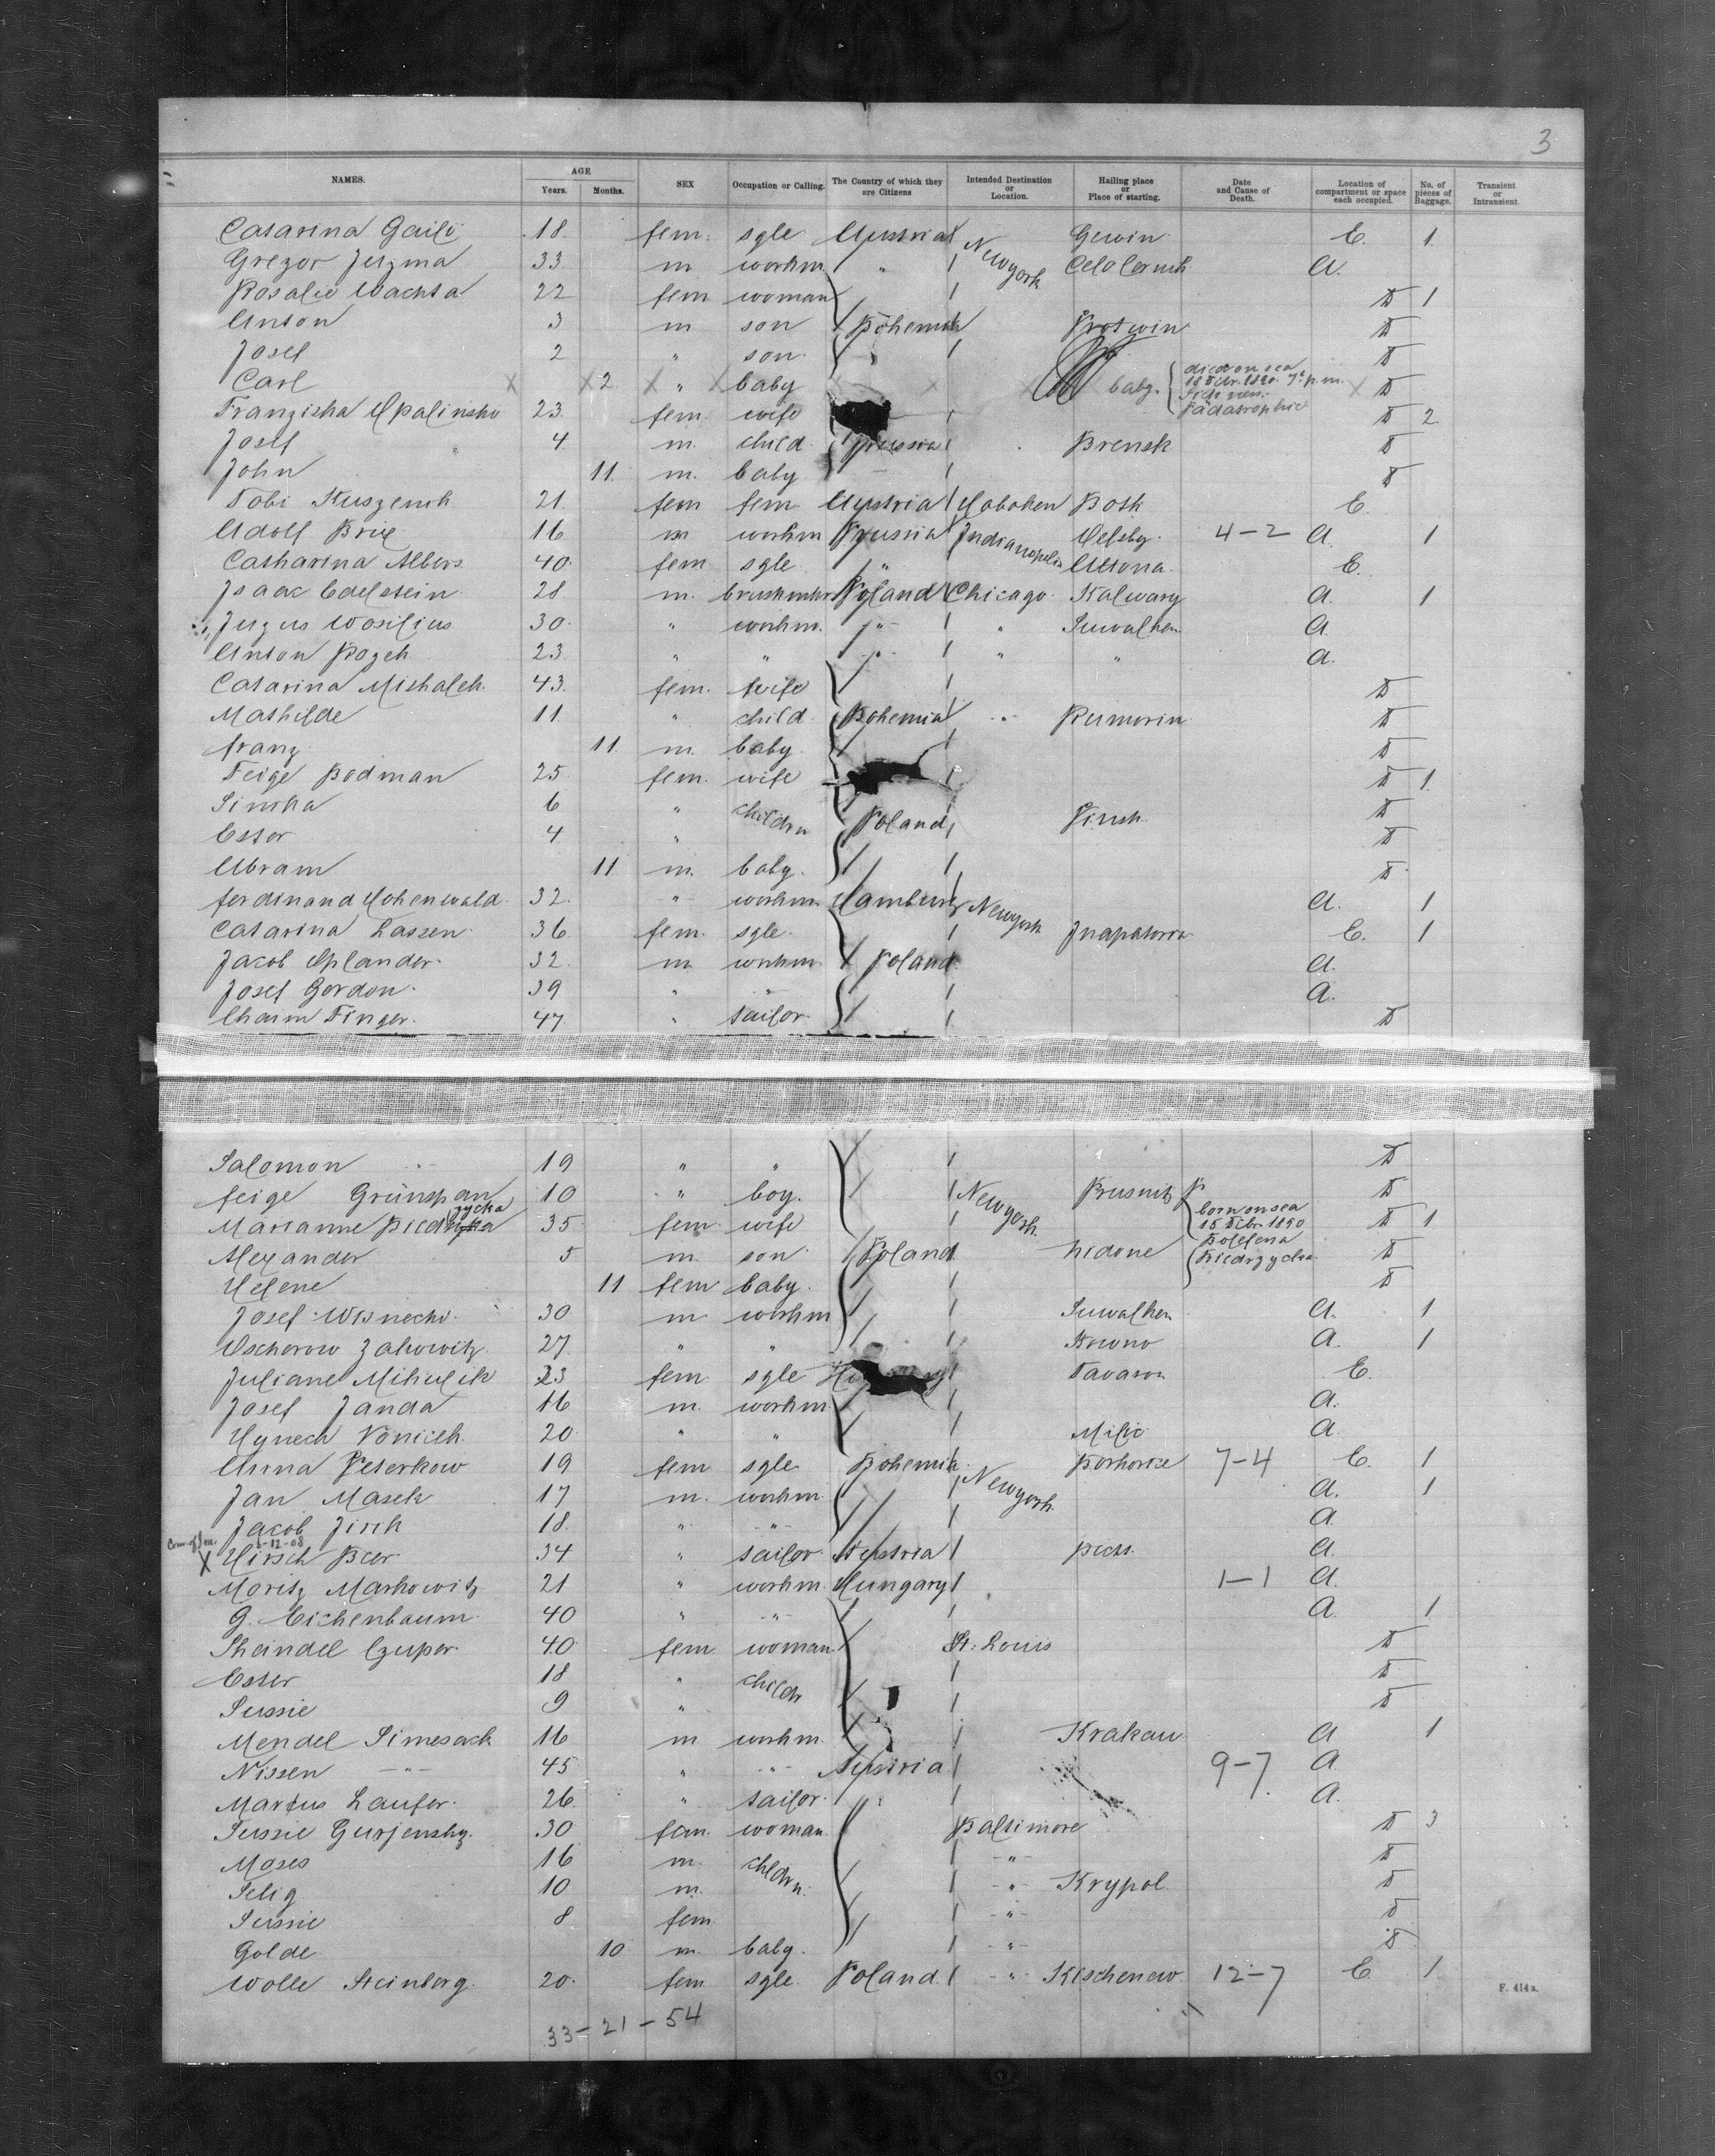 3
NAMES. AGE Years. Months. SEX Occupation or Calling. The Country of which they are Citizens Intended Destination or Location. Hailing place or Place of starting. Date and Cause of Death. Location of compartment or space each occupied. No. of pieces of Baggage. Transient or Intransient.
Catarina 18 fem. sgle Austria Newyork Gewin E. 1
Gregor Juzma 33 m workm. " A.
Rosalie Wachta 22 fem woman D 1
Anton 3 m son Bohemia Protwin D
Josef 2 " son D
Carl 2 " baby baby died on sea D
Franziska Opalinska 23 fem. wife D 2
Josef 4 m. child Prussia Brensk D
John 11 m. baby D
Tobi 21 fem fem. Austria Hoboken Bosk E.
Adolf Brie 16 m workm Prussia Indianapolis 4-2 A. 1
Catharina Albers 40 fem sgle " Altona E.
Isaac Edelstein 28 m. Poland Chicago Kalwary A. 1
Juzus Wasilius 30 " workm. " " Suwalken A
Anton Rozek 23 " " " " " A.
Catarina Mishalek 43 fem. wife D
Mathilde 11 " child Bohemia " D
Franz 11 m. baby D
Feige Rodman 25 fem. wife D 1
Simka 6 " childrn Poland Pinsk D
Ester 4 " D
Abram 11 m. baby. D
Ferdinand Hohenwald 32 " workm. Hamburg Newyork A. 1
Catarina Lassen 36 fem. sgle. E. 1
Jacob Oplander 32 m workm. Poland A.
Josef Gordon 39 " " A.
Chaim Finger 47 " tailor D
Salomon " 19 " " D
Feige Grünspan 10 " boy. Newyork Prusnitz D
zycka
Marianne 35 fem wife born on sea 15 Febr. 1890 D 1
Alexander 5 m. son Poland D
Helene 11 fem baby. D
Josef Wisnecki 30 m workm Suwalken A. 1
27 " " Kowno A. 1
Juliane Mihulik 23 fem sgle E.
Josef Janda 16 m. workm. A.
Hynech 20 " " Milic A
Anna Peterkow 19 fem sgle Bohemia Newyork 7-4 E. 1
Jan Masek 17 m. workm. A. 1
Jacob Jirik 18 " " A
X Hirsch Beer 34 " tailor Austria A.
Moritz Markowitz 21 " workm. Hungary 1-1 A.
G. Eichenbaum 40 " " A. 1
Sheindel Czuper 40 fem woman St. Louis D
Ester 18 " childr D
Sussie 9 " D
Mendel Simesack 16 m workm. Krakau A 1
Nissen " 45 " " Austria 9-7 A
Markus Laufer 26 " tailor A.
Sussie Gurjensky 30 fem. woman Baltimore D 3
Moses 16 m. childrn. " D
Selig 10 m. " Krypol D
Sussie 8 fem. " D
Golde 10 m. baby. " D
Wolle Steinberg 20 fem sgle. Poland " Kischenew 12-7 E. 1
F. 414a.
33-21-54